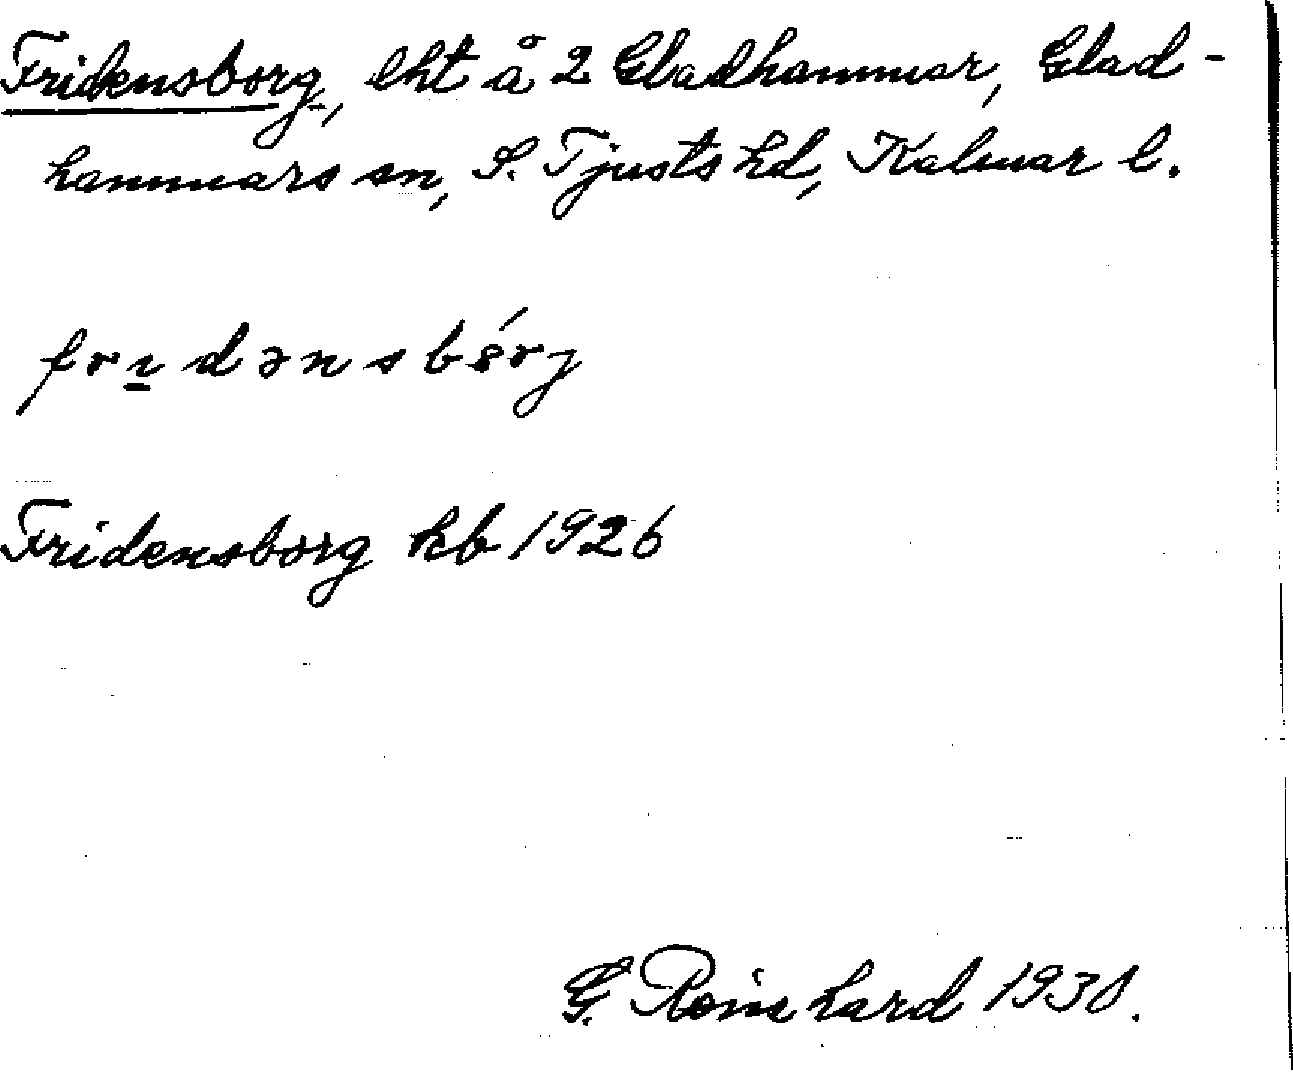 Fridensborg, lht å 2 Gladhammar, Glad-
hammars sn, S. Tjusts hd, Kalmar l.
Fridensborg kb 1926
G. Reinhard 1930.